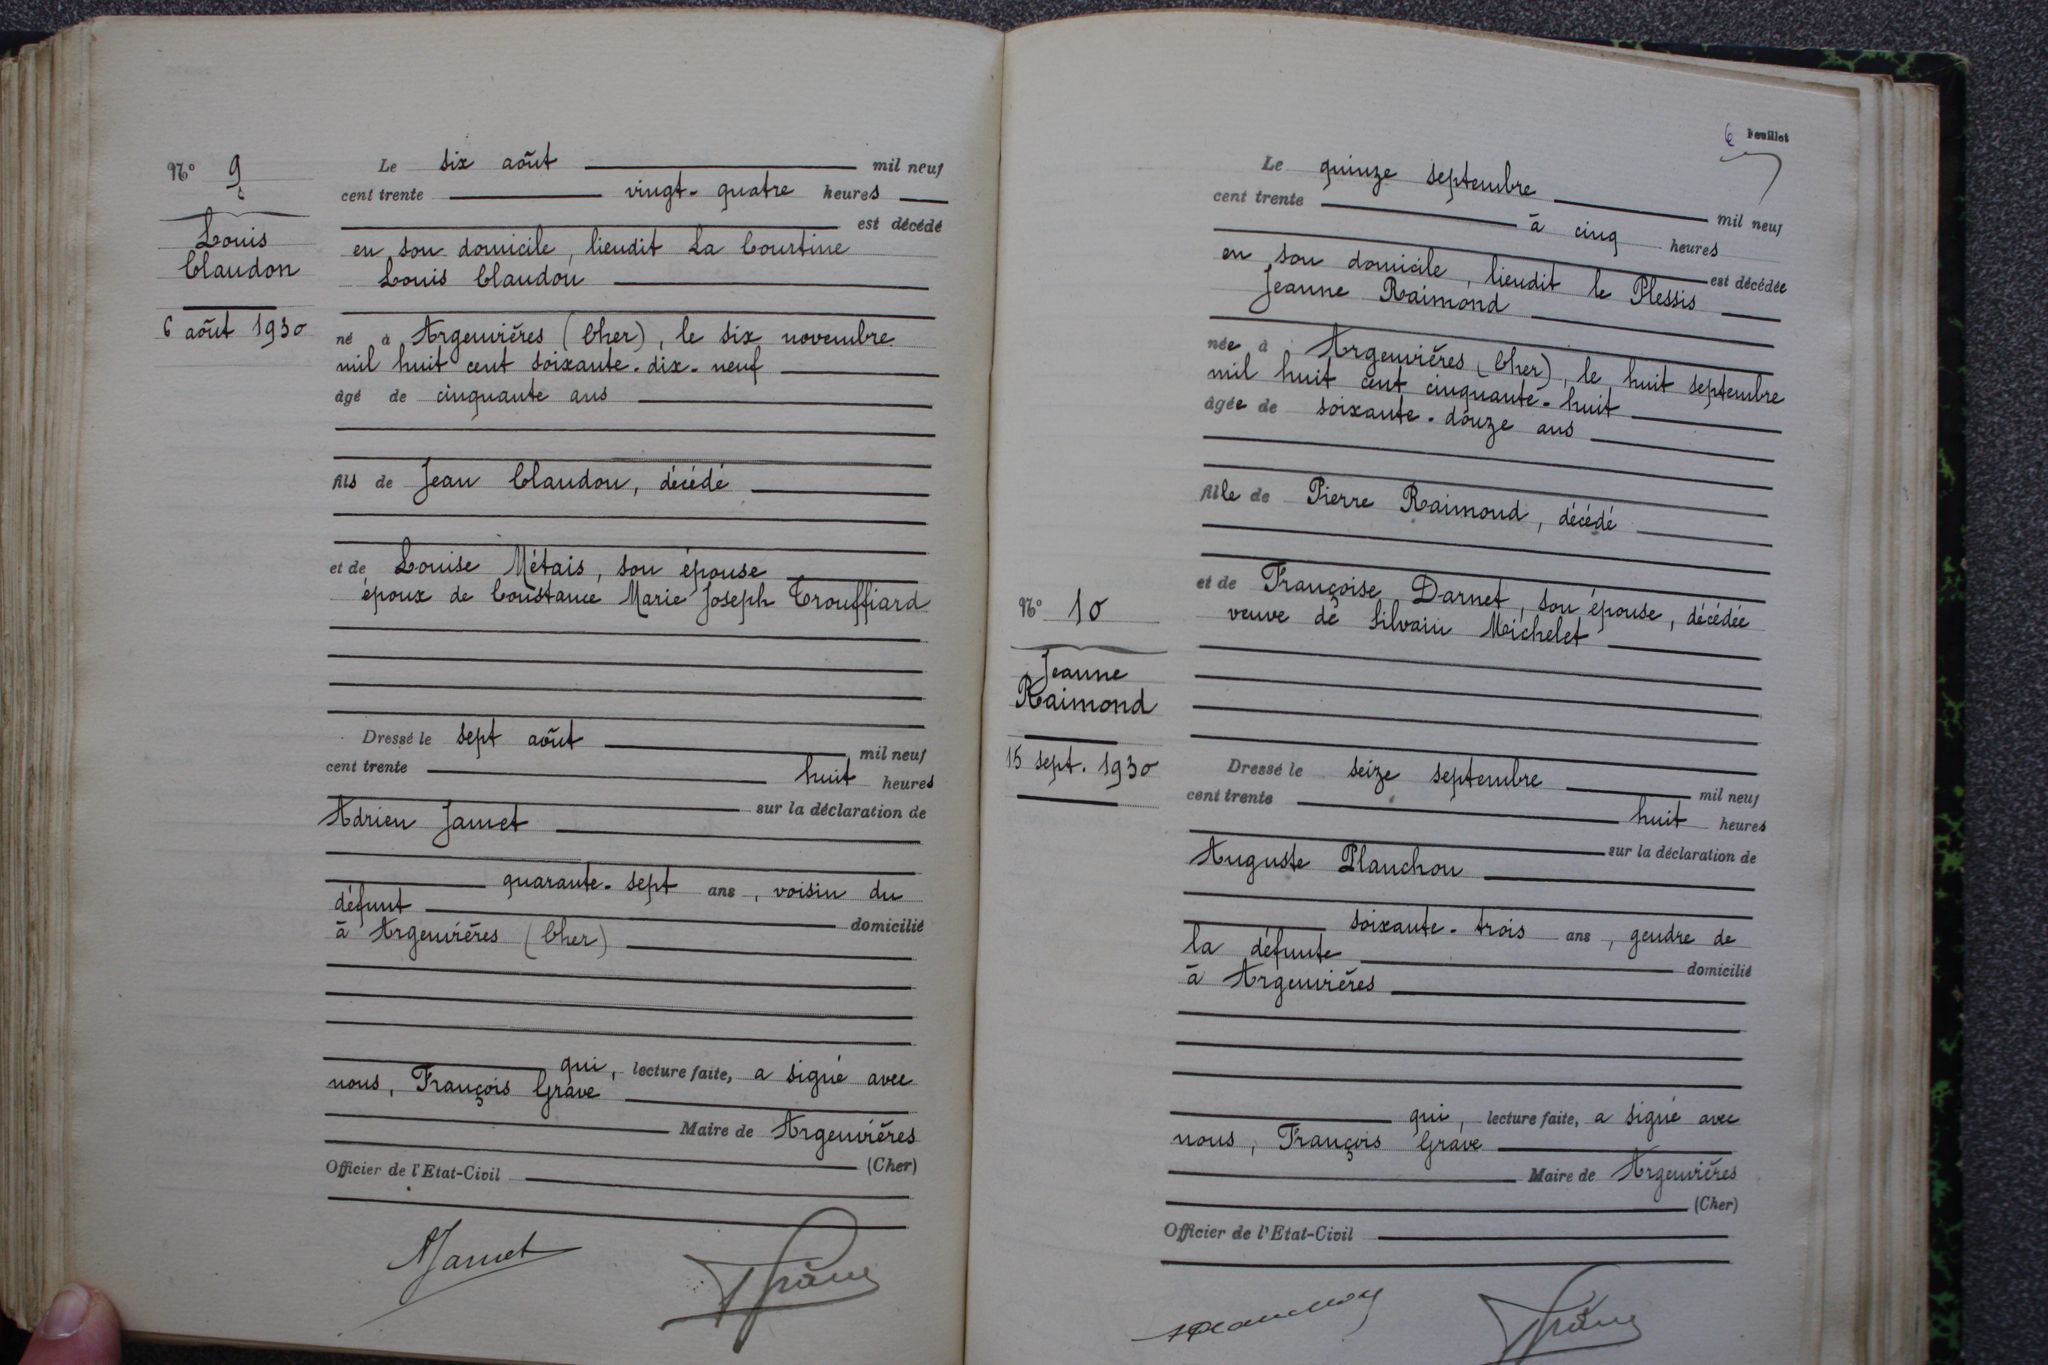 Nº 9
Louis
Claudon
6 août 1930
Le six août mil neuf
cent trente vingt-quatre heures
est décédé
en son domicile, lieudit La Courtine
Louis Claudon
né à Argenvières (Cher), le six novembre
mil huit cent soixante-dix-neuf
âgé de cinquante ans
fils de Jean Claudon, décédé
et de Louise Métais, son épouse
époux de Constance Marie Joseph Trouffiard
Dressé le sept août mil neuf
cent trente huit heures
sur la déclaration de
Adrien Jamet
quarante-sept ans, voisin du
défunt domicilié
à Argenvières (Cher)
qui, lecture faite, a signé avec
nous, François Grave
Maire de Argenvières
(Cher)
Officier de l'Etat-Civil
AJamet
FGrave
6 Feuillet
Nº 10
Jeanne
Raimond
15 sept. 1930
Le quinze septembre mil neuf
cent trente à cinq heures
est décédée
en son domicile, lieudit le Plessis
Jeanne Raimond
née à Argenvières (Cher), le huit septembre
mil huit cent cinquante-huit
âgée de soixante-douze ans
fille de Pierre Raimond, décédé
et de Françoise Darnet, son épouse, décédée
veuve de Silvain Michelet
Dressé le seize septembre mil neuf
cent trente huit heures
sur la déclaration de
Auguste Planchon
soixante-trois ans, gendre de
la défunte domicilié
à Argenvières
qui, lecture faite, a signé avec
nous, François Grave
Maire de Argenvières
(Cher)
Officier de l'Etat-Civil
Planchon
FGrave